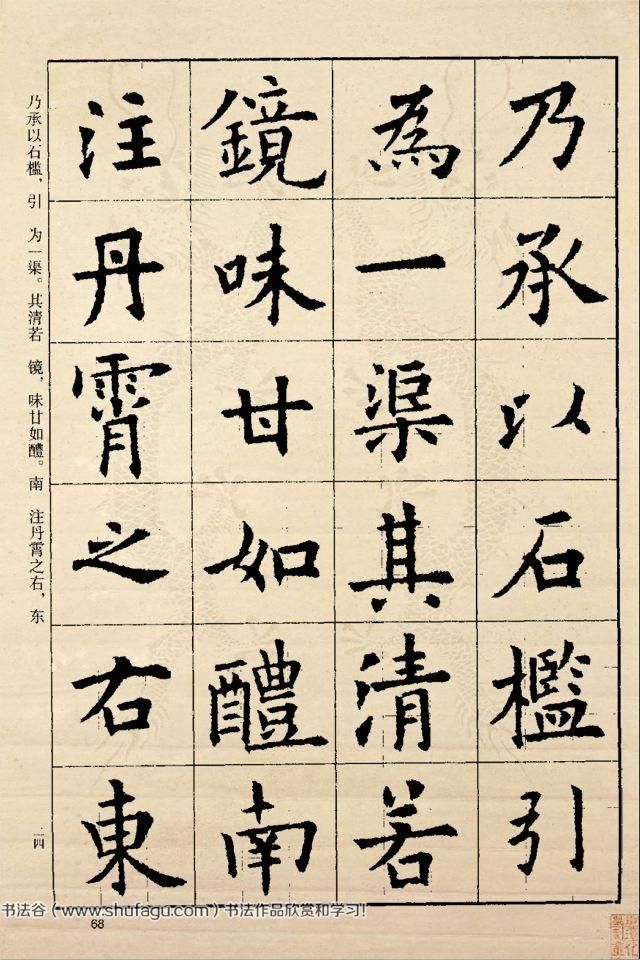 乃承以石檻引
為一渠其清若
鏡味甘如醴南
注丹霄之右東
乃承以石槛，引 为一渠。其清若 镜，味甘如醴。南 注丹霄之右，东
一四
书法谷（www.shufagu.com）书法作品欣赏和学习！
68